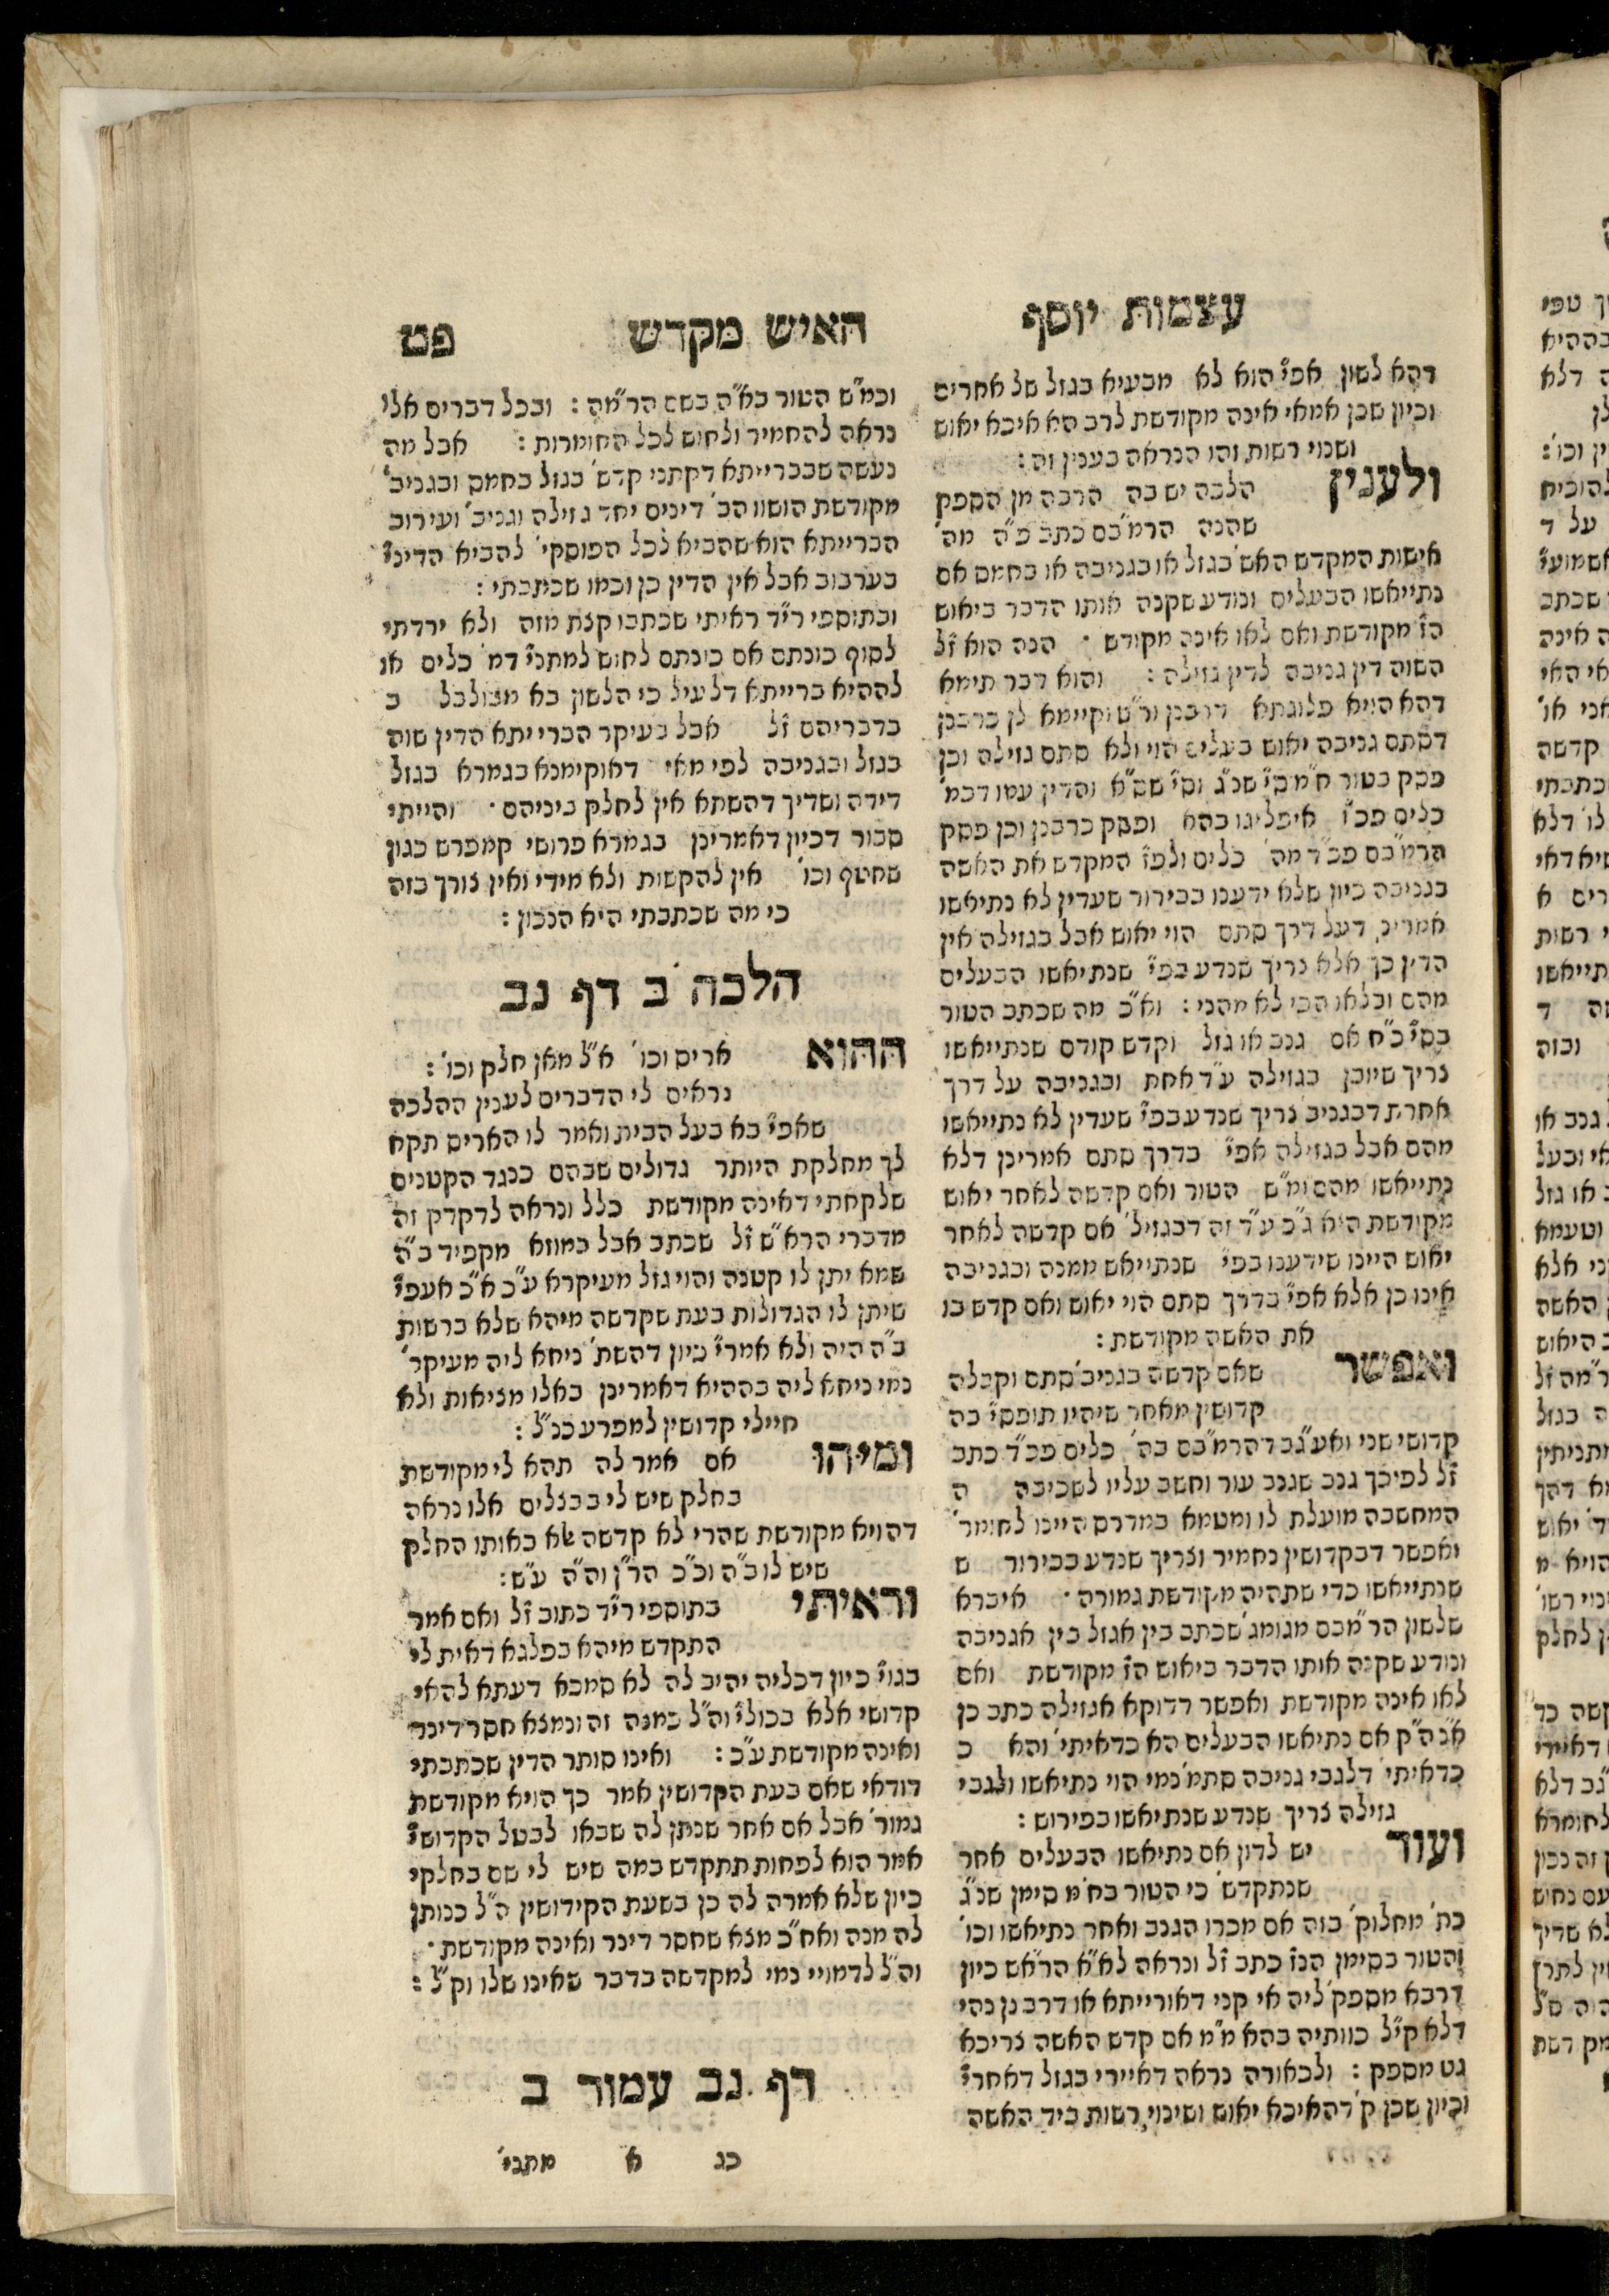 עצמות יוסף
האיש מקדש
פט
דהא לשון אפי' הוא לא מבעיא בגזל של אחרים
וכיון שכן אמאי אינה מקודשת לרב הא איכא יאוש
ושנוי רשות וזהו הנראה בענין זה :
ולענין הלכה יש בה הרבה מן הספק
שהנה הרמ"בם כתב פ"ה מה'
אישות המקדש האש' בגזל או בגניבה או בחמס אם
נתייאשו הבעלים ונודע שקנה אותו הדבר ביאוש
ה"ז מקודשת ואם לאו אינה מקודש' · הנה הוא ז"ל
השוה דין גניבה לדין גזילה : והוא דבר תימא
דהא הויא פלוגתא דרבנן ור"ש וקיימא לן כרבנן
דסתם גניבה יאוש בעלים הוי ולא סתם גזילה וכן
פסק בטור ח"מ סי' שנ"ג וסי' שס"א והדין עמו דבמ'
כלים פכ"ו איפליגו בהא ופסק כרבנן וכן פסק
הרמ"בם פכ"ד מה' כלים ולפ"ז המקדש את האשה
בגניבה כיון שלא ידענו בבירור שעדין לא נתיאשו
אמרינן דעל דרך סתם הוי יאוש אבל בגזילה אין
הדין כך אלא צריך שנדע בפי' שנתיאשו הבעלים
מהם ובלאו הכי לא מהני : וא"כ מה שכתב הטור
בסי' כ"ח אם גנב או גזל וקדש קודם שנתייאשו
צריך שיובן בגזילה ע"ד אחת ובגניבה על דרך
אחרת דבגניב' צריך שנדע בפי' שעדין לא נתייאשו
מהם אבל בגזילה אפי' בדרך סתם אמרינן דלא
נתייאשו מהם ומ"ש הטור ואם קדשה לאחר יאוש
מקודשת היא ג"כ ע"ד זה דבגזיל' אם קדשה לאחר
יאוש היינו שידענו בפי' שנתייאש ממנה ובגניבה
אינו כן אלא אפי' בדרך סתם הוי יאוש ואם קדש בו
את האשה מקודשת :
ואפשר שאם קדשה בגניב' סתם וקבלה
קדושין מאחר שיהיו תופסי' בה
קדושי שני ואע"גב דהרמ"בם בה' כלים פכ"ד כתב
ז"ל לפיכך גנב שגנב עור וחשב עליו לשכיבה ה
המחשבה מועלת לו ומטמא במדרס היינו לחומר'
ואפשר דבקדושין נחמיר וצריך שנדע בבירור ש
שנתייאשו כדי שתהיה מקודשת גמורה · איברא
שלשון הר"מבם מגומג' שכתב בין אגזל בין אגניבה
ונודע שקנה אותו הדבר ביאוש ה"ז מקודשת ואם
לאו אינה מקודשת ואפשר דדוקא אגזילה כתב כן
א"נ ה"ק אם נתיאשו הבעלים הא כדאיתי' והא כ
כדאיתי' דלגבי גניבה סתמ' נמי הוי נתיאשו ולגבי
גזילה צריך שנדע שנתיאשו בפירוש :
ועוד יש לדון אם נתיאשו הבעלים אחר
שנתקדש' כי הטור בח"מ סימן שנ"ג
כת' מחלוק' בזה אם מכרו הגנב ואחר נתיאשו וכו'
והטור בסימן הנז' כתב ז"ל ונראה לא"א הרא"ש כיון
דרבא מספק' ליה אי קני דאורייתא או דרבנן נהי
דלא ק"ל כוותיה בהא מ"מ אם קדש האשה צריכא
גט מספק : ולכאורה נראה דאיירי בגזל דאחרי'
וכיון שכן ק' דהאיכא יאוש ושינוי רשות ביד האשה
וכמ"ש הטור בא"ה בשם הר"מה : ובכל דברים אלי
נראה להחמיר ולחוש לכל החומרות : אבל מה
נעשה שבברייתא דקתני קדש' בגזל בחמס ובגניב'
מקודשת הושוו הב' דינים יחד גזילה וגניב' ועירוב
הברייתא הוא שהביא לכל הפוסקי' להביא הדיני'
בערבוב אבל אין הדין כן וכמו שכתבתי :
ובתוספי רי"ד ראיתי שכתבו קצת מזה ולא ירדתי
לסוף כונתם אם כונתם לחוש למתני' דמ' כלים או
לההיא ברייתא דלעיל כי הלשון בא מבולבל ב
בדבריהם ז"ל אבל בעיקר הברייתא הדין שוה
בגזל ובגניבה לפי מאי דאוקימנא בגמרא בגזל
דידה ושדיך דהשתא אין לחלק ביניהם · והייתי
סבור דכיון דאמרינן בגמרא פרושי קמפרש כגון
שחטף וכו' אין להקשות ולא מידי ואין צורך בזה
כי מה שכתבתי היא הנכון :
הלכה ב דף נב
ההוא אריס וכו' א"ל מאן חלק וכו' :
נראים לי הדברים לענין ההלכה
שאפי' בא בעל הבית ואמר לו האריס תקח
לך מחלקת היותר גדולים שבהם כנגד הקטנים
שלקחתי דאינה מקודשת כלל ונראה לדקדק זה
מדברי הרא"ש ז"ל שכתב אבל במוצא מקפיד ב"ה
שמא יתן לו קטנה והוי גזל מעיקרא ע"כ א"כ אעפ"י
שיתן לו הגדולות בעת שקדשה מיהא שלא ברשות
ב"ה היה ולא אמרי' כיון דהשת' ניחא ליה מעיקר'
נמי ניחא ליה בההיא דאמרינן באלו מציאות ולא
חיילי קדושין למפרע כנ"ל :
ומיהו אם אמר לה תהא לי מקודשת
בחלק שיש לי בבצלים אלו נראה
דהויא מקודשת שהרי לא קדשה אלא באותו החלק
שיש לו ב"ה וכ"כ הר"ן וה"ה ע"ש :
וראיתי בתוספי רי"ד כתוב ז"ל ואם אמר
התקדש מיהא בפלגא דאית לי
בגוי' כיון דכליה יהיב לה לא סמכא דעתא להאי
קדושי אלא בכולי' וה"ל במנה זה ונמצא חסר דינר
ואינה מקודשת ע"כ : ואינו סותר הדין שכתבתי
דודאי שאם בעת הקדושין אמר כך הויא מקודשת
גמור' אבל אם אחר שנתן לה שבאו לבטל הקדושי'
אמר הוא לפחות תתקדש במה שיש לי שם בחלקי
כיון שלא אמרה לה כן בשעת הקידושין ה"ל כנותן
לה מנה ואח"כ מצא שחסר דינר ואינה מקודשת ·
וה"ל לדמויי נמי למקדשה בדבר שאינו שלו וק"ל :
דף נב עמוד ב
כג א מתני'